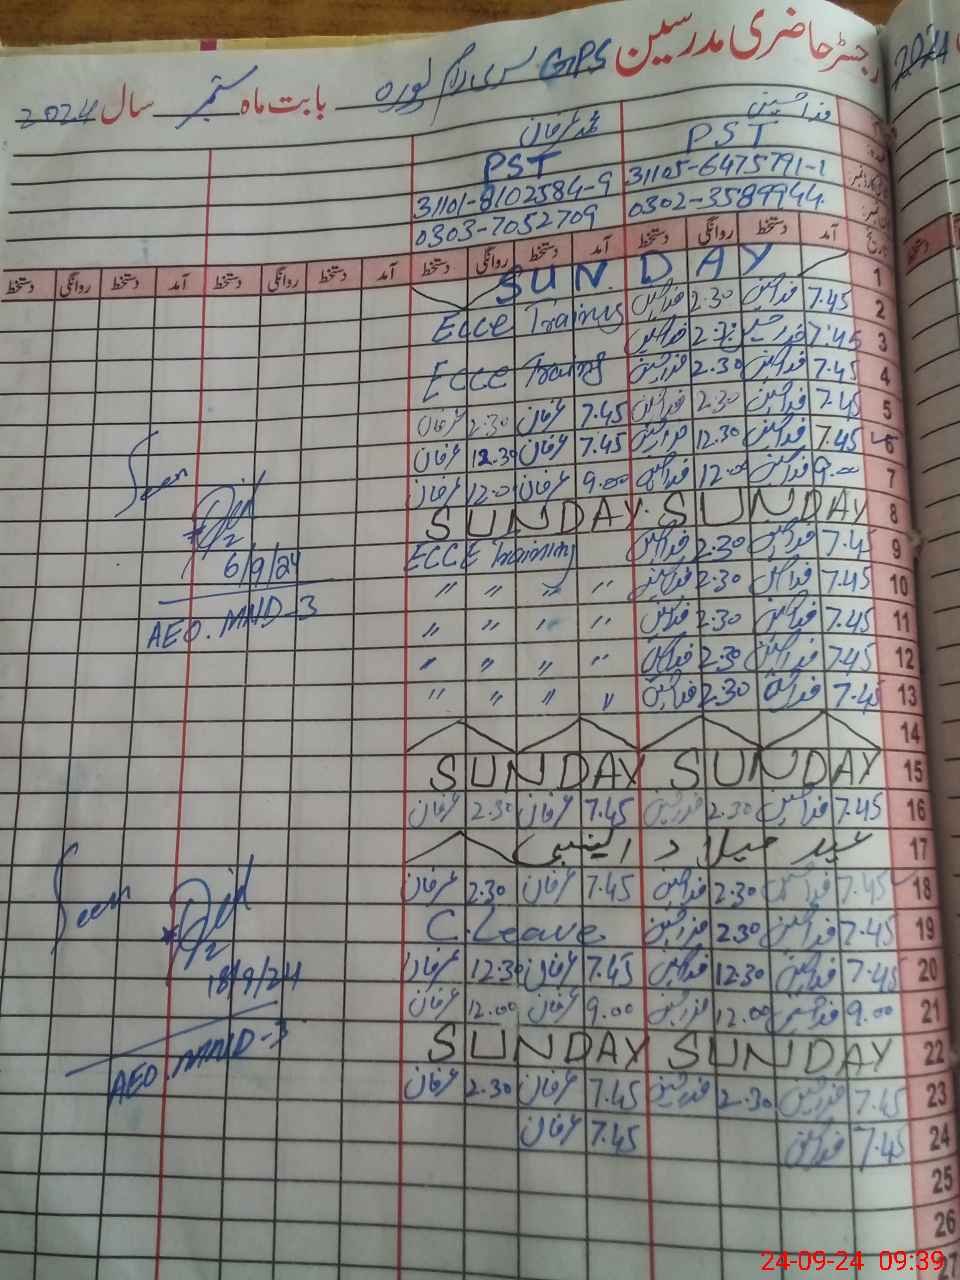 رجسٹر حاضری مدرسین GPS سری رام پورہ بابت ماہ ستمبر سال 2024
2024
فدا حسین محمد عرفان
PST PST
31105-6475791-1 31101-8102584-9
0302-3589944 0303-7052709
تاریخ آمد دستخط روانگی دستخط آمد دستخط روانگی دستخط آمد دستخط روانگی دستخط آمد دستخط روانگی دستخط
1 SUNDAY
2 7.45 فدا حسین 2.30 فدا حسین Ecce Training
3 7.45 فدا حسین 2.30 فدا حسین
4 7.45 فدا حسین 2.30 فدا حسین Ecce Training
5 7.45 فدا حسین 2.30 فدا حسین 7.45 عرفان 2.30 عرفان
6 7.45 فدا حسین 12.30 فدا حسین 7.45 عرفان 12.30 عرفان
7 9.00 فدا حسین 12.00 فدا حسین 9.00 عرفان 12.00 عرفان
8 SUNDAY SUNDAY
9 7.45 فدا حسین 2.30 فدا حسین ECCE Training
10 7.45 فدا حسین 2.30 فدا حسین " " " "
11 7.45 فدا حسین 2.30 فدا حسین " " " "
12 7.45 فدا حسین 2.30 فدا حسین " " " "
13 7.45 فدا حسین 2.30 فدا حسین " " " "
14
15 SUNDAY SUNDAY
16 7.45 فدا حسین 2.30 فدا حسین 7.45 عرفان 2.30 عرفان
17 عید میلاد النبی
18 7.45 فدا حسین 2.30 فدا حسین 7.45 عرفان 2.30 عرفان
19 7.45 فدا حسین 2.30 فدا حسین C.Leave
20 7.45 فدا حسین 12.30 فدا حسین 7.45 عرفان 12.30 عرفان
21 9.00 فدا حسین 12.00 فدا حسین 9.00 عرفان 12.00 عرفان
22 SUNDAY SUNDAY
23 7.45 فدا حسین 2.30 فدا حسین 7.45 عرفان 2.30 عرفان
24 7.45 فدا حسین 7.45 عرفان
25
26
27
Seen
6/9/24
AEO. MND-3
Seen
18/9/24
AEO. MND-3
24-09-24 09:39